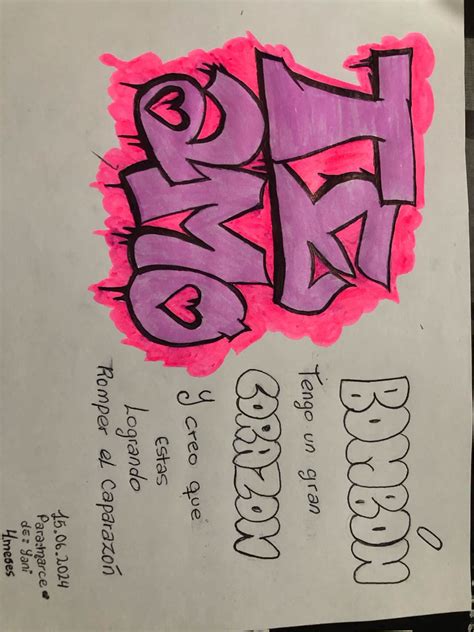 TE
amo
BOMBÓN
Tengo un gran
CORAZON
Y creo que
Estas
Logrando
Romper el Caparazón
15.06.2024
Para: marce
de: Yani
4meses